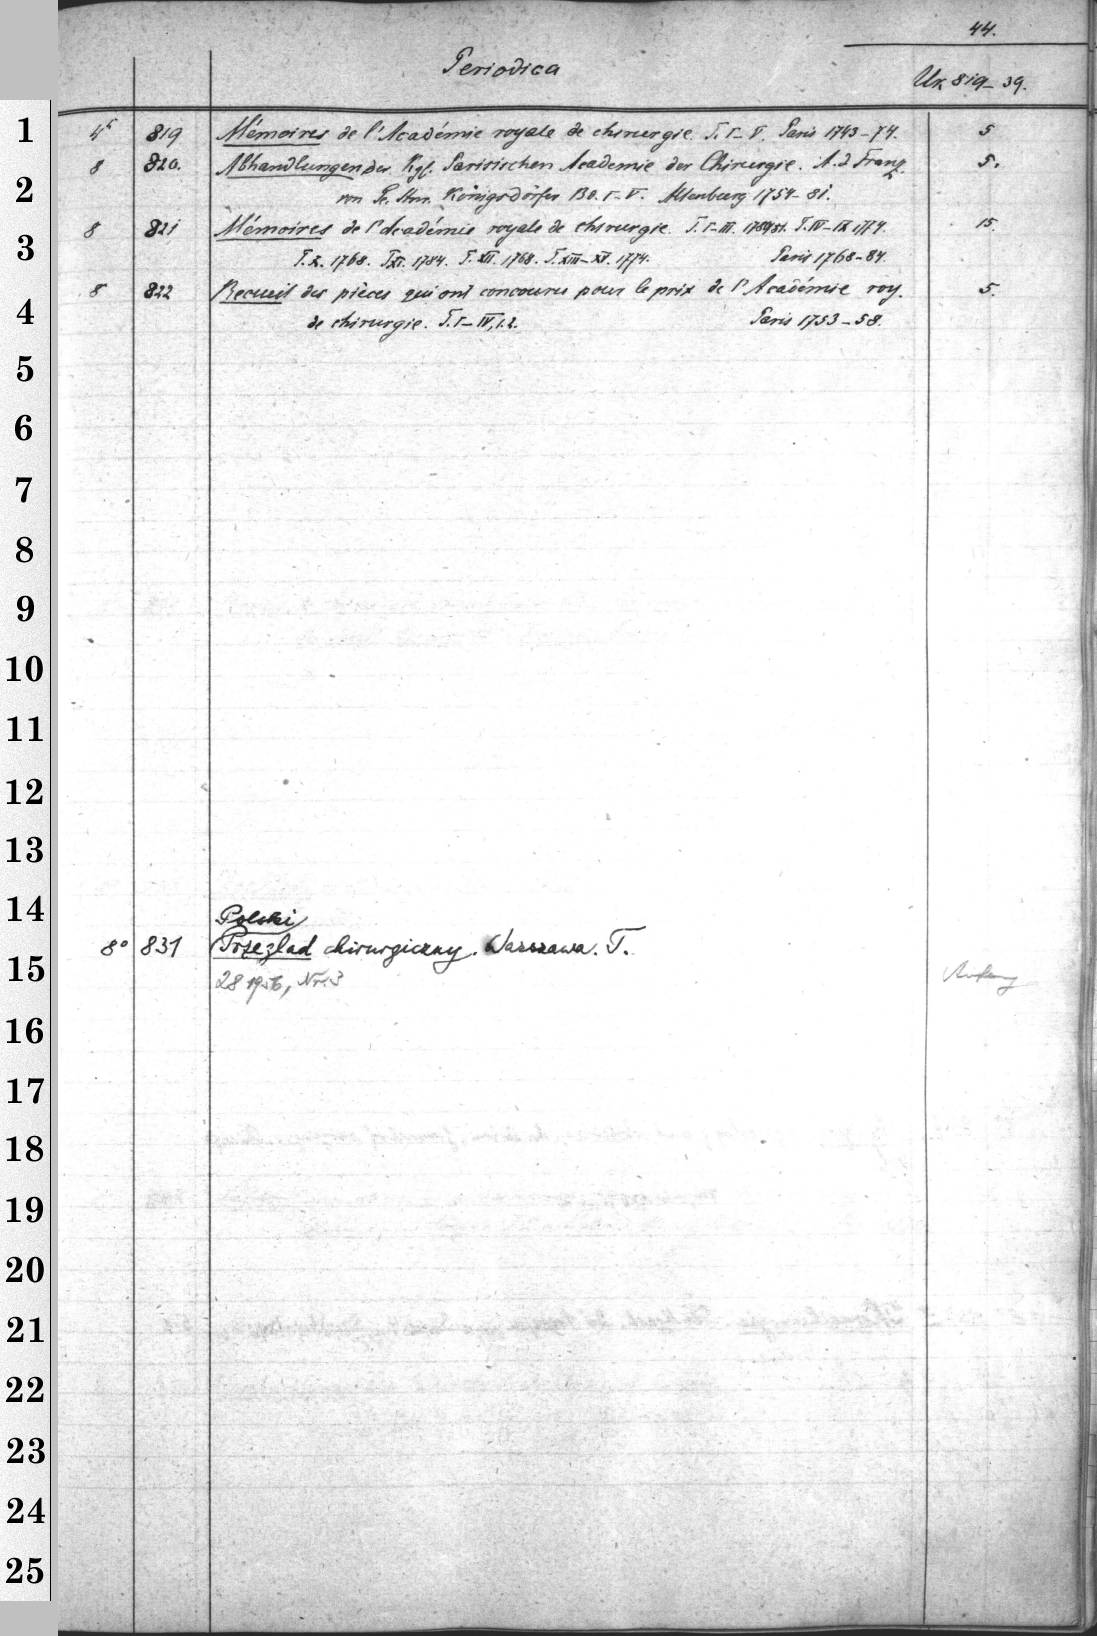 44.
Periodica
Ux 819-39.
1
4° 819 Mémoires de l'Académie royale de chirurgie. T. I-V. Paris 1743-74. 5
8 820. Abhandlungen der Kgl. Parisischen Academie der Chirurgie. A. d Franz. 5.
2
von Königsdörfer Bd. I-V. Altenburg 1754-81.
8 821 Mémoires de l'Académie royale de chirurgie. T. I-III. T. IV-IX 1774. 15.
3
T. X. 1768. T. XI. 1784. T. XII. 1768. T. XIII-XV. 1774. Paris 1768-84.
8 822 Recueil des pièces qui ont concouru pour le prix de l'Académie roy. 5.
4
de chirurgie. T. I-IV,1.2. Paris 1753-58.
5
6
7
8
9
10
11
12
13
14
Polski
8° 831 Przeglad chirurgiczny. Warszawa. T.
15
28 1956, Nr. 3
16
17
18
19
20
21
22
23
24
25